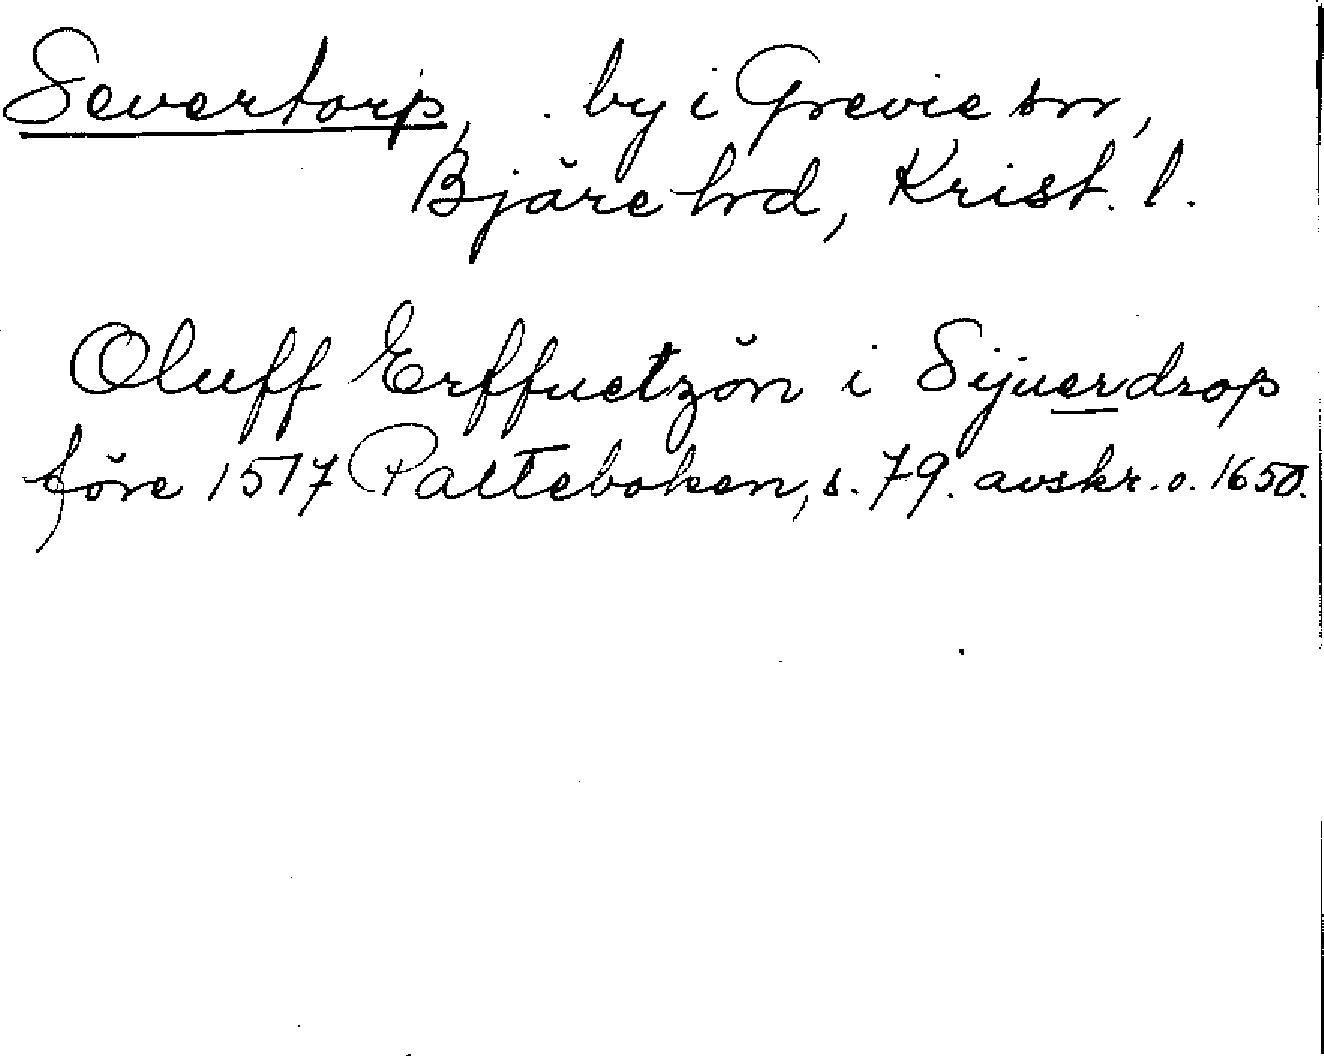 Severtorp, by i Grevie sn,
Bjäre hrd, Krist. l.
Oluff Erffuetzön i Sijuerdrop
före 1517 Palteboken, s. 79. avskr. o. 1650.